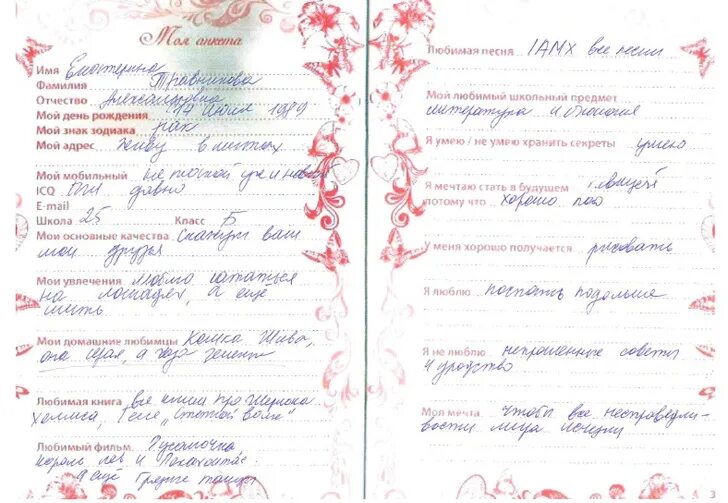 Моя анкета
Имя Екатерина
Фамилия Травникова
Отчество Александровна
Мой день рождения 17 июля 1989
Мой знак зодиака рак
Мой адрес Живу в мечтах
Мой мобильный не
ICQ давно
E-mail
Школа 25 Класс Б
Мои основные качества Скажут вам
мои друзья
Мои увлечения люблю кататься
на лошадях, а ещё
шить
Мои домашние любимцы Кошка Жива,
она серая, а глаза зелёные
Любимая книга все книги про Шерлока
Холмса, Гессе „Степной волк"
Любимый фильм Русалочка
Король лев и Покахонтас
а ещё Грязные танцы
Любимая песня IAMX все песни
Мой любимый школьный предмет
литература и биология
Я умею / не умею хранить секреты умею
Я мечтаю стать в будущем певицей
потому что хорошо пою
У меня хорошо получается рисовать
Я люблю поспать подольше
Я не люблю непрошенные советы
и уродство
Моя мечта чтобы все несправедли-
вости мира исчезли